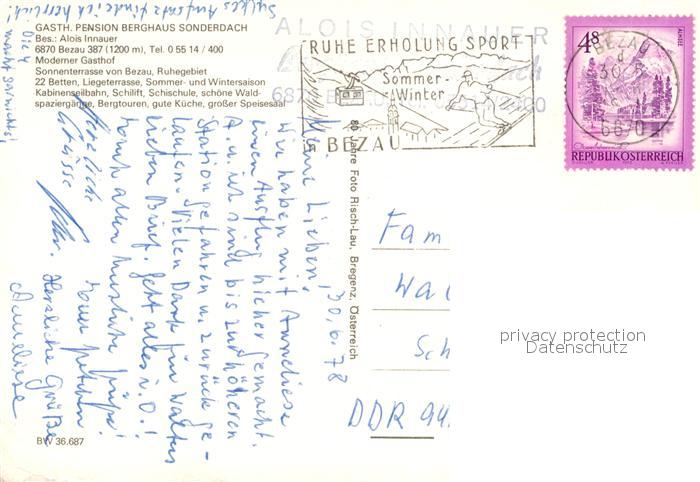 Silkes Aufsatz finde ich herrlich!
Die 4
macht garnichts!
GASTH. PENSION BERGHAUS SONDERDACH
Bes.: Alois Innauer
6870 Bezau 387 (1200 m), Tel. 0 55 14 / 400
Moderner Gasthof
Sonnenterrasse von Bezau, Ruhegebiet
22 Betten, Liegeterrasse, Sommer- und Wintersaison
Kabinenseilbahn, Schilift, Schischule, schöne Wald-
spaziergänge, Bergtouren, gute Küche, großer Speisesaal
ALOIS INNAUER
RUHE ERHOLUNG SPORT
Sommer-
Winter
BEZAU
48
BEZAU
6870
REPUBLIK ÖSTERREICH
80 Jahre Foto Risch-Lau, Bregenz, Österreich
30.6.78
Meine Lieben!
Wir haben mit Anneliese
einen Ausflug hierher gemacht.
A. u. ich sind bis zur höheren
Station gefahren u. zurück ge-
laufen. Vielen Dank für Walters
lieben Brief. Geht alles i. O.!
Euch allen
Herzliche
Grüsse
Herzliche Grüße
Anneliese
Fam
Wal
Sch
DDR 94
BW 36.687
privacy protection
Datenschutz